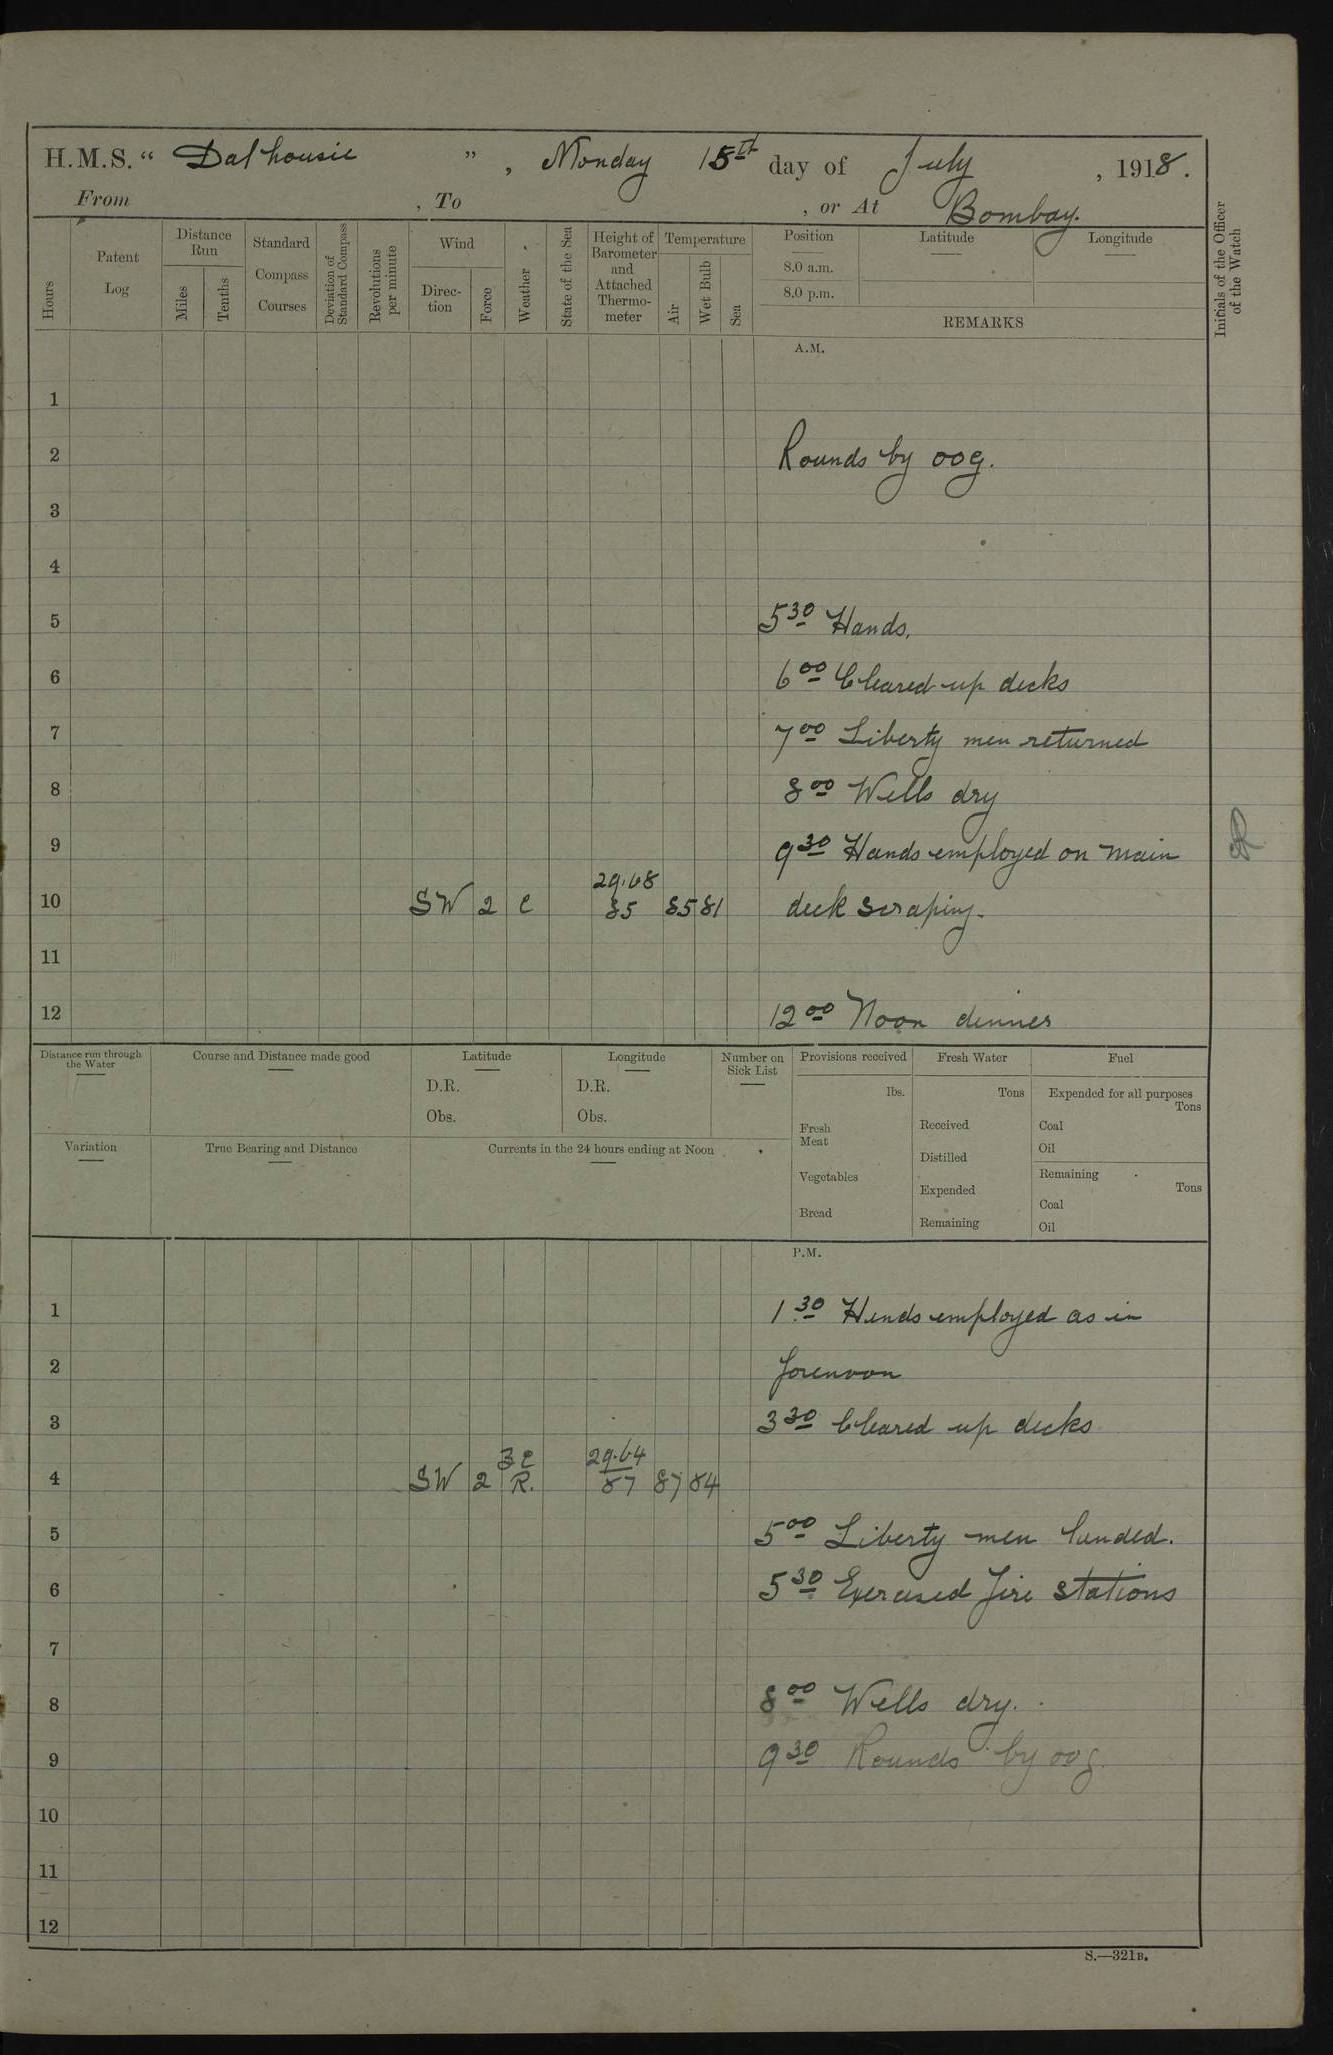 H.M.S. “ Dalhousie ” , Monday 15th day of July , 1918.
From , To , or At Bombay.
Hours
Patent Log
Distance Run
Miles
Tenths
Standard Compass Courses
Deviation of Standard Compass
Revolutions per minute
Wind
Direction
Force
Weather
State of the Sea
Height of Barometer and Attached Thermometer
Temperature
Air
Wet Bulb
Sea
Position
8.0 a.m.
8.0 p.m.
Latitude
Longitude
REMARKS
Initials of the Officer of the Watch
A.M.
1
2 Rounds by oog.
3
4
5 5 30 Hands.
6 6 00 Cleared up decks
7 7 00 Liberty men returned
8 8 00 Wells dry
9 9 30 Hands employed on main
29.68
10 SW 2 C 85 85 81 deck scraping.
11
12 12 00 Noon dinner
Distance run through the Water
Course and Distance made good
Latitude
D.R.
Obs.
Longitude
D.R.
Obs.
Number on Sick List
Variation
True Bearing and Distance
Currents in the 24 hours ending at Noon
Provisions received
lbs.
Fresh Meat
Vegetables
Bread
Fresh Water
Tons
Received
Distilled
Expended
Remaining
Fuel
Expended for all purposes
Tons
Coal
Oil
Remaining
Tons
Coal
Oil
P.M.
1 1.30 Hands employed as in
2 forenoon
3 3 30 Cleared up decks
BC 29.64
4 SW 2 R. 87 87 84
5 5 00 Liberty men landed.
6 5 30 Exercised Fire Stations
7
8 8 00 Wells dry.
9 9 30 Rounds by oog.
10
11
12
S.—321B.